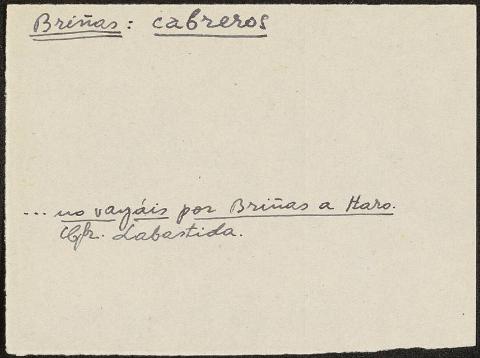 Briñas: cabreros
... no vayáis por Briñas a Haro.
Cfr. Labastida.